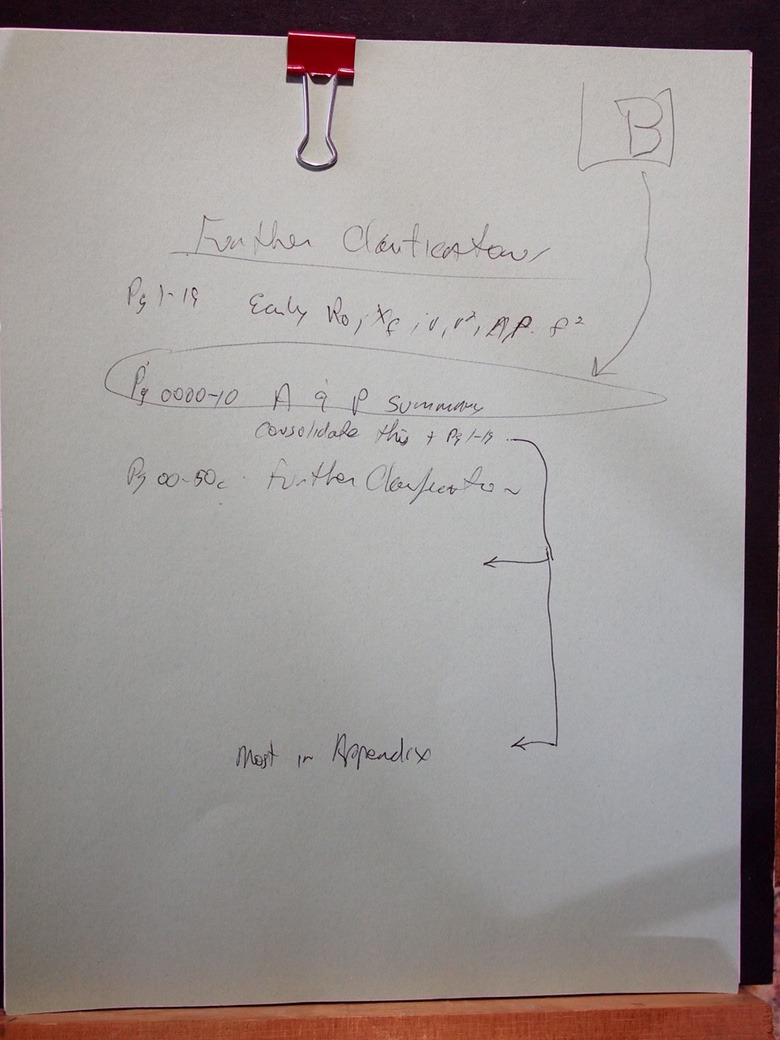 B
Further Clarifications
Pg 1-19 Early Ro, Xf, v, v², A, P. f²
Pg 0000-10 A & P summary
consolidate this + Pg 1-19
Pg 00-50c Further Clarification
Most in Appendix